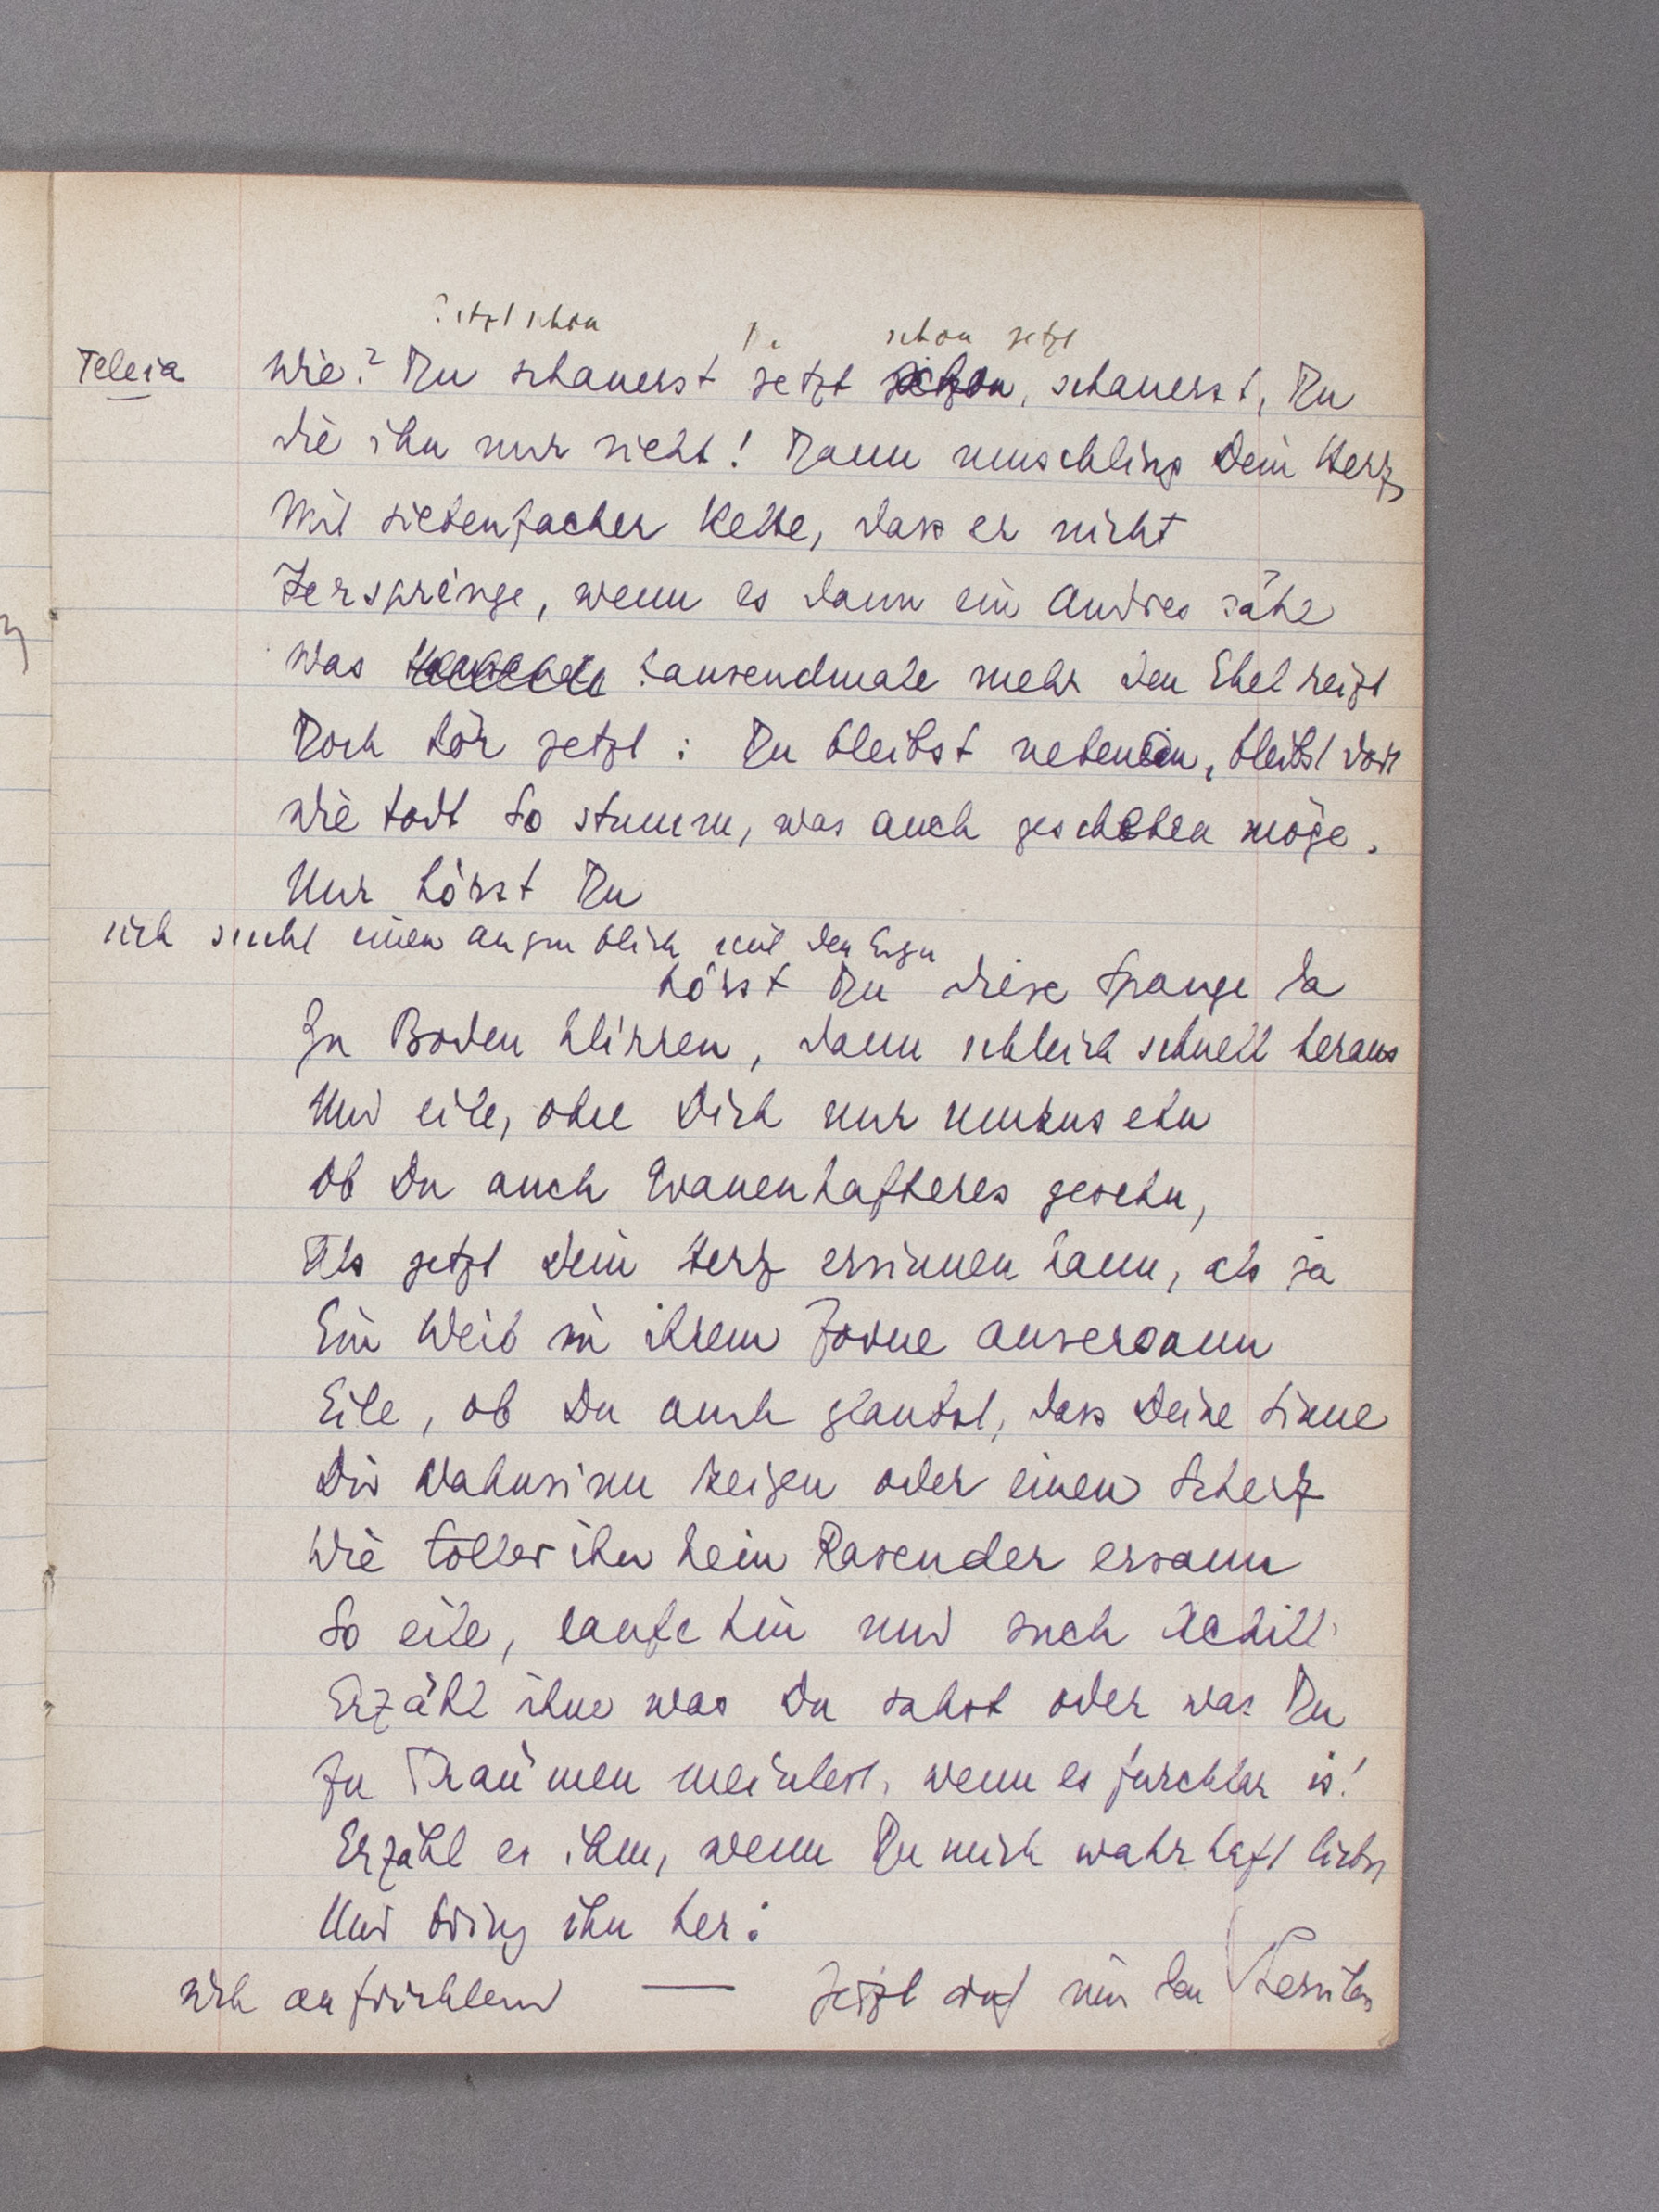 jetzt schon Du schon jetzt
Teleia Wie? Du schauerst jetzt schon, schauerst, Du
die ihn nur sieht! Dann umschling Dein Herz
Mit siebenfacher Kette, dass er nicht
Zerspringe, wenn es dann ein Andres sähe
Was tausendmale mehr den Ekel reizt
Doch hör jetzt: Du bleibst nebenan, bleibst dort
Wie todt so stumm, was auch geschehen möge.
Nur hörst Du
sich sucht einen augenblick mit den
hörst Du diese Spange da
Zu Boden klirren, dann schleich schnell heraus
Und eile, ohne Dich nur umzusehn
Ob Du auch Grauenhafteres gesehn,
Als jetzt Dein Herz ersinnen kann, als je
Ein Weib in ihrem Zorne ausersann
Eile, ob Du auch glaubst, dass Deine Sinne
Dir Wahnsinn zeigen oder einen Scherz
Wie toller ihn kein Rasender ersann
So eile, laufe hin und such Achill
Erzähl ihm was Du sahst oder was Du
Zu Träumen meintest, wenn es furchtbar is!
Erzähl es ihm, wenn Du mich wahrhaft liebst
Und bring ihn her:
sich aufrichtend — Jetzt ruf mir den